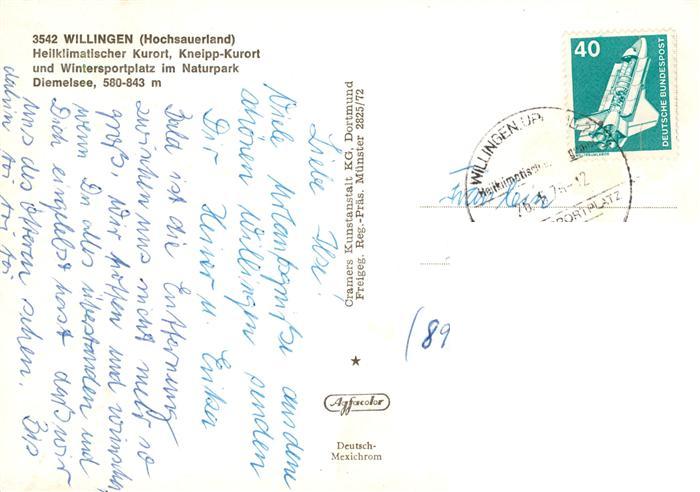 3542 WILLINGEN (Hochsauerland)
Heilklimatischer Kurort, Kneipp-Kurort
und Wintersportplatz im Naturpark
Diemelsee, 580-843 m
Liebe Ilse!
Viele Urlaubsgrüße aus dem
schönen Willingen senden
Dir Heinr u. Erika
Bald ist die Entfernung
zwischen uns nicht mehr so
groß, wir hoffen und wünschen
wenn Du alles überstanden und
Dich eingelebt hast daß wir
uns des öfteren sehen. Bis
dahin toi toi toi
Cramers Kunstanstalt KG, Dortmund
Freigeg. Reg.-Präs. Münster 2825/72
Agfacolor
Deutsch-
Mexichrom
40
DEUTSCHE BUNDESPOST
WILLINGEN, UP
Heilklimatischer
SPORTPLATZ
Fräulein
/89